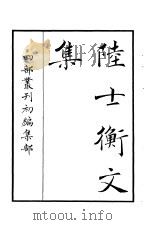 陸士衡文
集
四部叢刊初編集部
mtoou.info